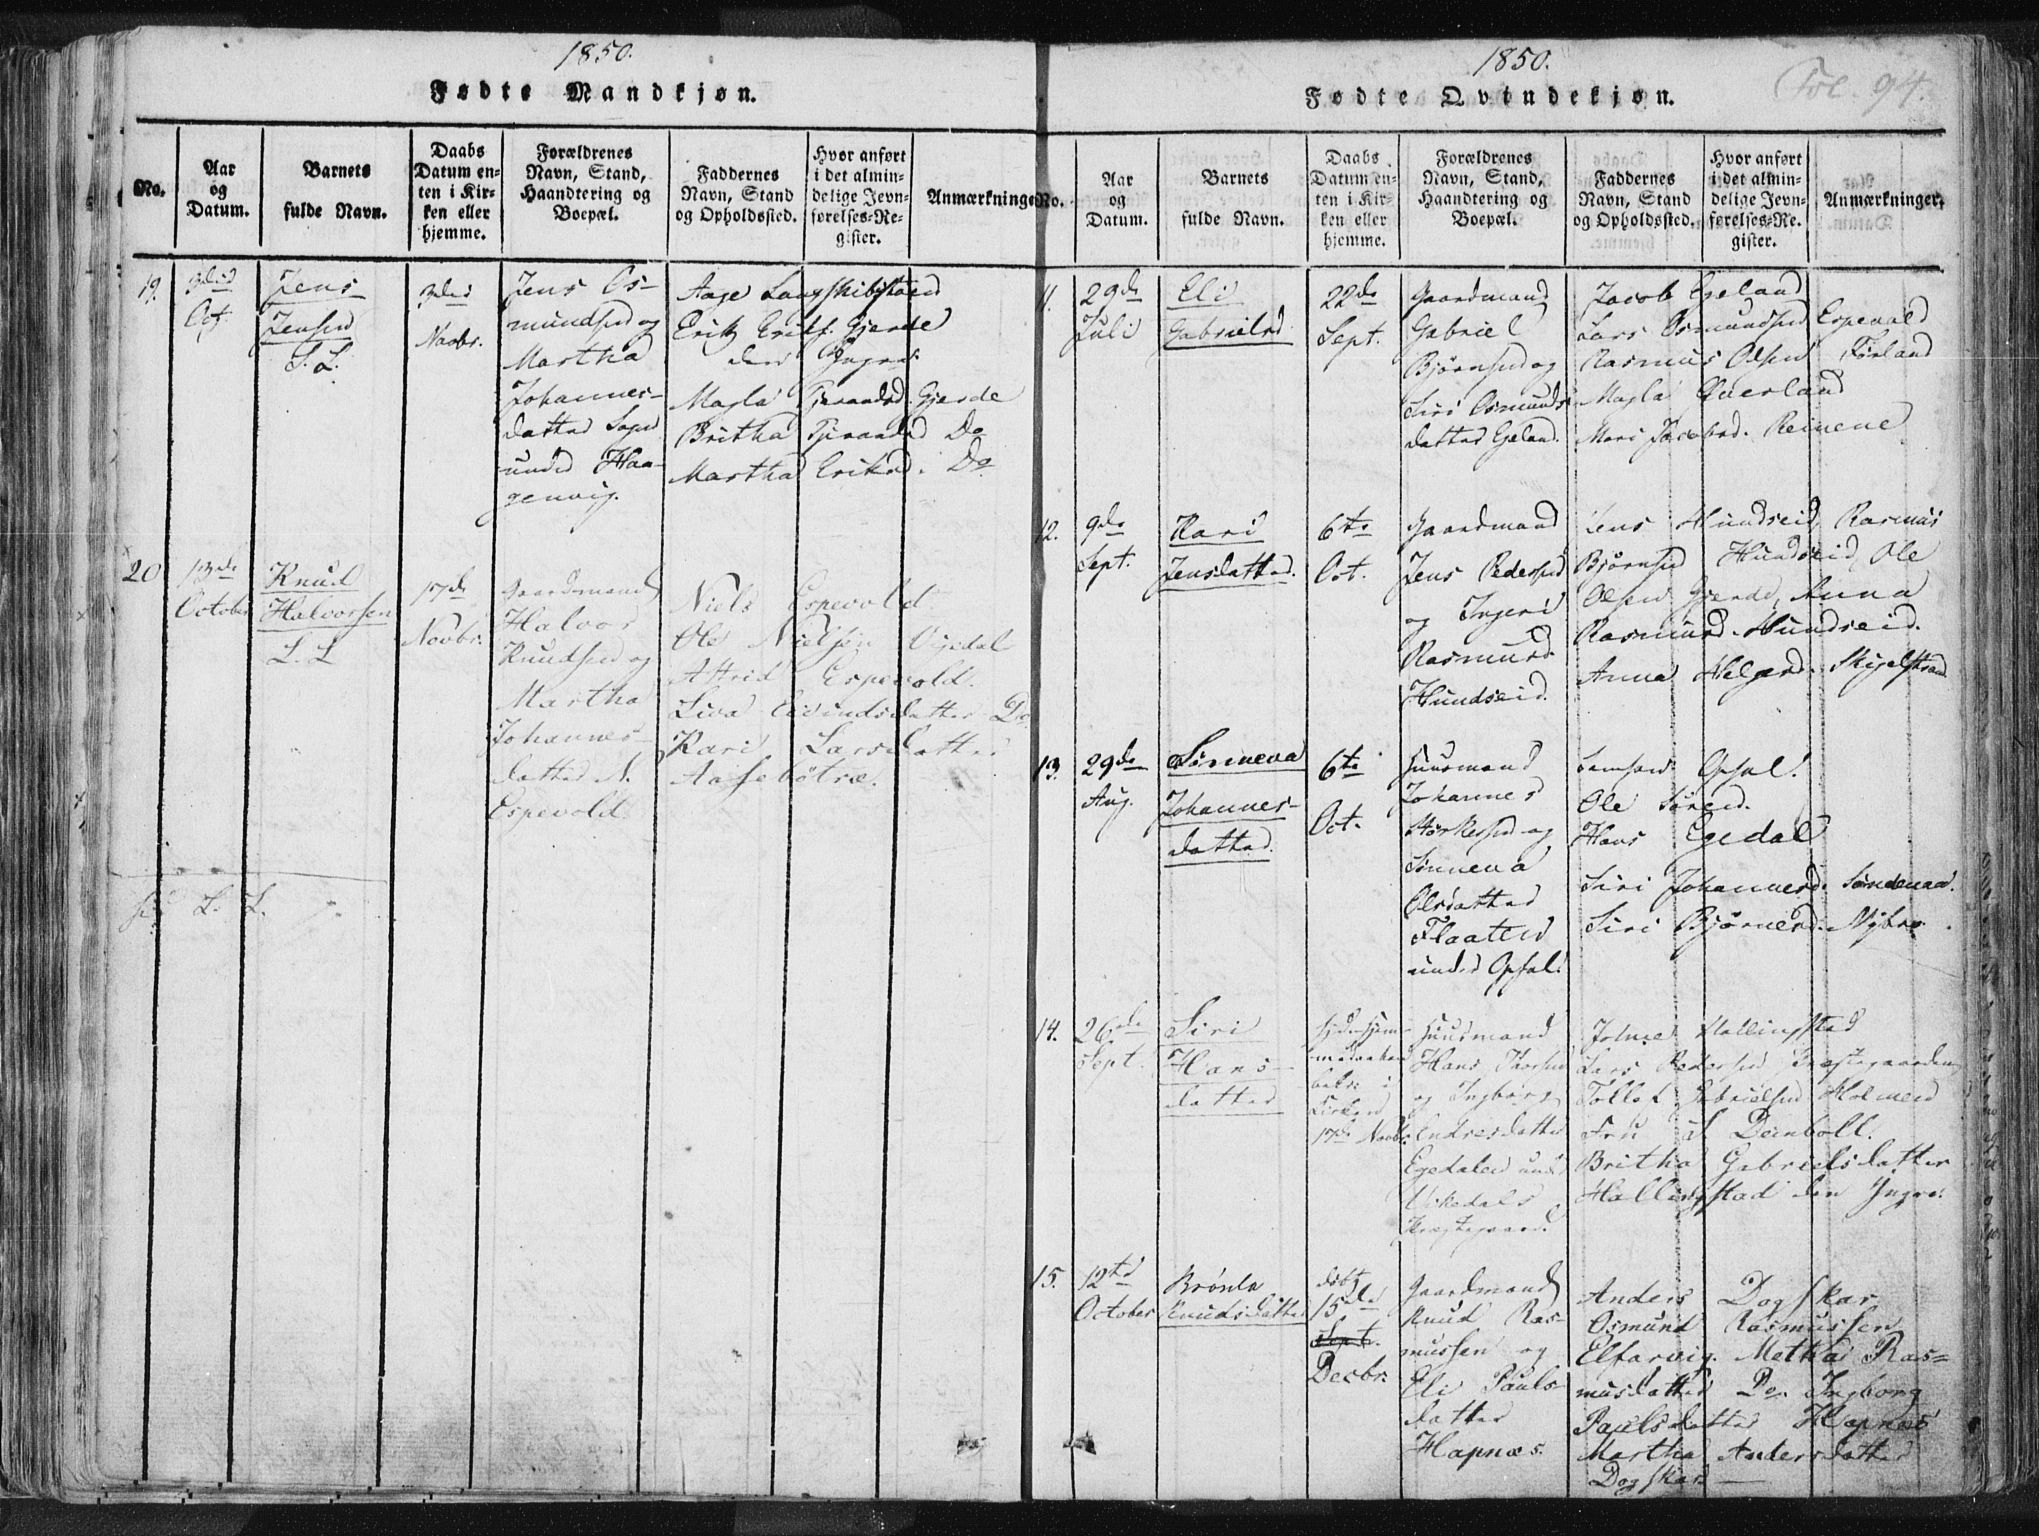 1850.
Fødte Mandkjøn.
No.
Aar
og
Datum.
Barnets
fulde Navn.
Daabs
Datum en-
ten i Kir-
ken eller
hjemme.
Forældrenes
Navn, Stand,
Haandtering og
Boepæl.
Faddernes
Navn, Stand
og Opholdssted.
Hvor anført
i det almin-
delige Jevn-
førelses-Re-
gister.
Anmærkninge
19.
3die
Oct.
Jens
Jensen
S. L.
3die
Novbr.
Jens Os-
mundsen og
Martha
Johannes-
datter
under Haa-
genvig.
Aage Langskibstøed
Erik Eriks. Gjerde
den Yngre
Magla Tjerandsd. Gjerde
Britha Tjerandsd Do
Martha Eriksd. Do
20
13de
October
Knud
Halvorsen
L. L
17de
Novbr.
Gaardmand
Halvor
Knudsen og
Martha
Johannes-
datter N.
Espevold
Niels Espevold
Ole Nielsen Øgedal
Attrid Espevold.
Siva Eivindsdatter Do
Kari Larsdatter
Aasebøtræ.
L. L.
1850.
Fol. 94.
Fødte Qvindekjøn.
No.
Aar
og
Datum.
Barnets
fulde Navn.
Daabs
Datum en-
ten i Kir-
ken eller
hjemme.
Forældrenes
Navn, Stand,
Haandtering og
Boepæl.
Faddernes
Navn, Stand
og Opholdssted.
Hvor anført
i det almin-
delige Jevn-
førelses-Re-
gister.
Anmærkninger.
11.
29de
Juli
Eli
Gabrielsd
22de
Sept.
Gaardmand
Gabriel
Bjørnsen og
Siri Osmunds
datter Egeland.
Jacob Egeland
Lars Osmundsen Espevold
Rasmus Olsen Førland
Magla Qverland
Mari Jacobsd. Reinene
12.
9de
Sept.
Kari
Jensdatter.
6te
Oct.
Gaardmand
Jens Pedersen
og Ingeri
Rasmusd
Hundseid.
Jens Hundseid, Rasmus
Bjørnsen Hundseid, Ole
Olsen Gjerde, Anna
Rasmusd. Hundseid.
Anna Helgesd. Skigelstrand
13.
29de
Aug.
Sønneva
Johannes-
datter.
6te
Oct.
Huusmand
Johannes
Størkersen og
Sønneva
Olsdatter
Flaaten
under Opsal.
Samson Opsal.
Ole
Hans Egedal
Siri Johannesd. Søndenaa.
Siri Bjørnesd. Nybro.
14.
26de
Sept.
Siri
Hans-
datter
Hjem-
i
Kirken
17de Novbr.
Huusmand
Hans Thorsen
og Ingborg
Endresdatter
Egedalen under
Vikedals
Præstegaard.
Jolme Hallingstad
Lars Pedersen Præstegaarden
Tollef Gabrielsen Holmen
Fru Deinboll.
Britha Gabrielsdatter
Hallingstad den Yngre.
15.
12te
October
Brønla
Knudsdatter
døbt
15de
Sept.
Decbr.
Gaardmand
Knud Ras-
mussen og
Eli Pauls-
datter
Hapnæs.
Anders Dogskar
Osmund Rasmussen
Elfarvig. Metha Ras=
musdatter Do. Ingborg
Paulsdatter Hapnæs
Martha Andersdatter
Dogskar